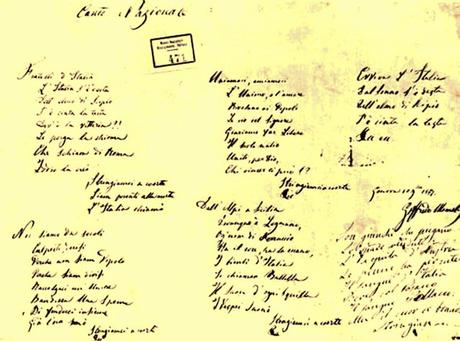 Canto Nazionale
474
Fratelli d'Italia
L'Italia s'è desta
Dell'elmo di Scipio
S'è cinta la testa
Dov'è la vittoria?!
Le porga la chioma
Che schiava di Roma
Iddio la creò
Stringiamci a coorte
Siam pronti alla morte
L'Italia chiamò
Noi siamo da secoli
Calpesti, derisi
Perché non siam Popolo
Perché siam divisi
Raccolgaci un'Unica
Bandiera una Speme
Di fonderci insieme
Già l'ora suonò
Stringiamci a coorte
Uniamoci, amiamoci
L'Unione, e l'amore
Rivelano ai Popoli
Le vie del Signore
Giuriamo far Libero
Il suolo natio
Uniti, per Dio,
Chi vincer ci può!?
Stringiamci a coorte
Dall'Alpi a Sicilia
Dovunque è Legnano,
Ogn'uom di Ferruccio
Ha il core, ha la mano,
I bimbi d'Italia
Si chiaman Balilla
Il suon d'ogni squilla
I Vespri suonò
Stringiamci a coorte
Evviva l'Italia
Dal sonno s'è desta
Dell'elmo di Scipio
S'è cinta la testa
Genova
Goffredo Mameli
Son giunchi che piegano
Le spade vendute
L'aquila d'Austria
Le penne ha perdute
Il sangue d'Italia
Il sangue
Stringiamci